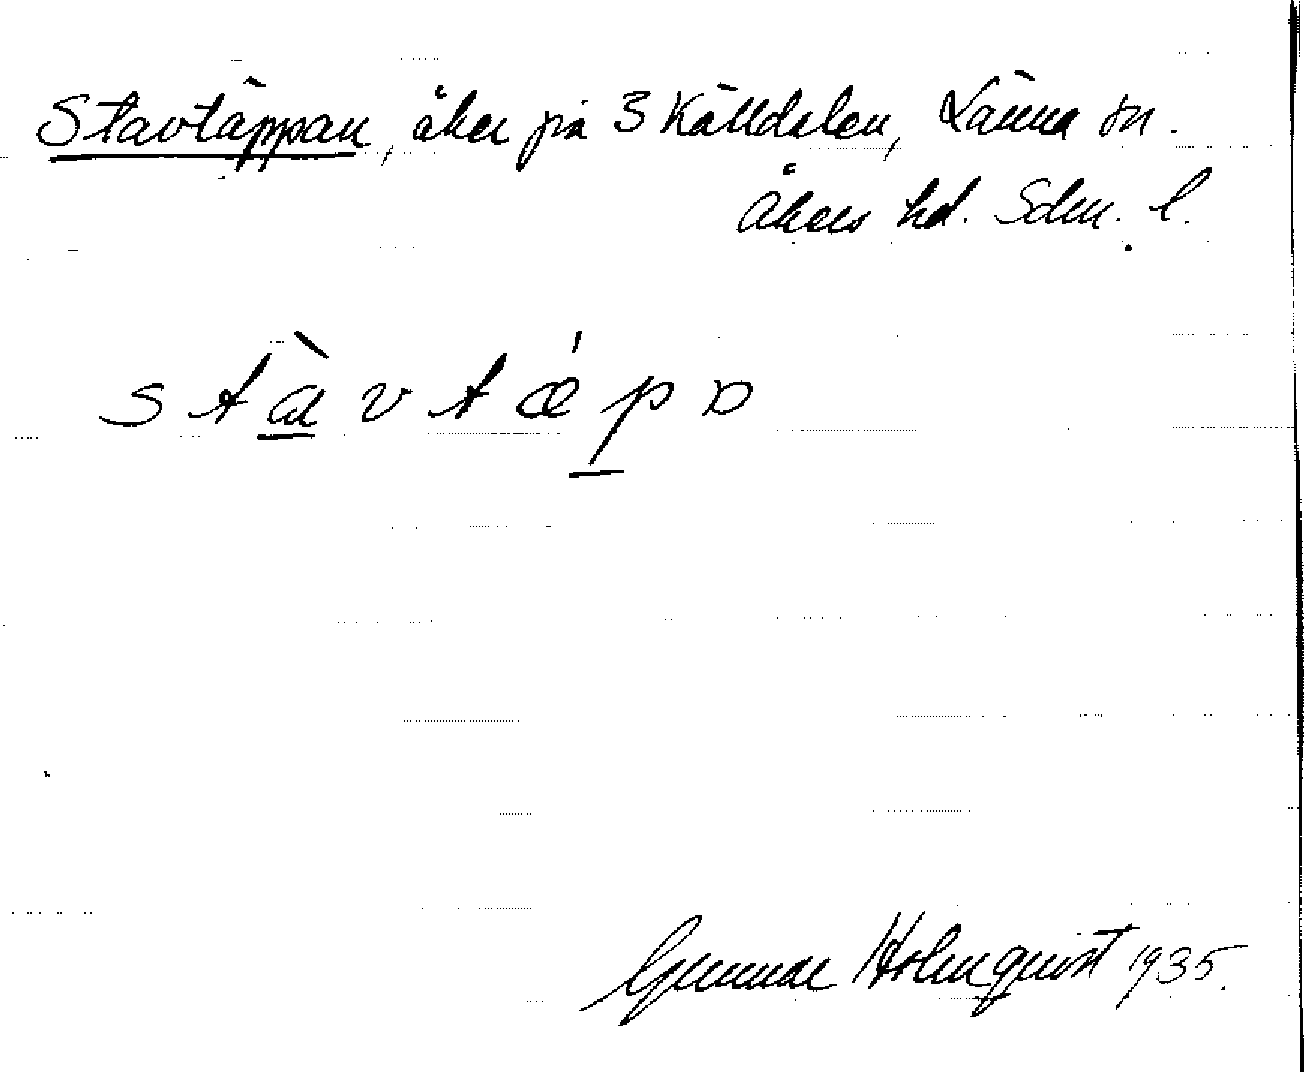 Stavtäppan, åker på 3 Källdalen, Länna sn.
Åkers hd. Sdm. l.
stàvtǽpa
Gunnar Holmquist 1935.